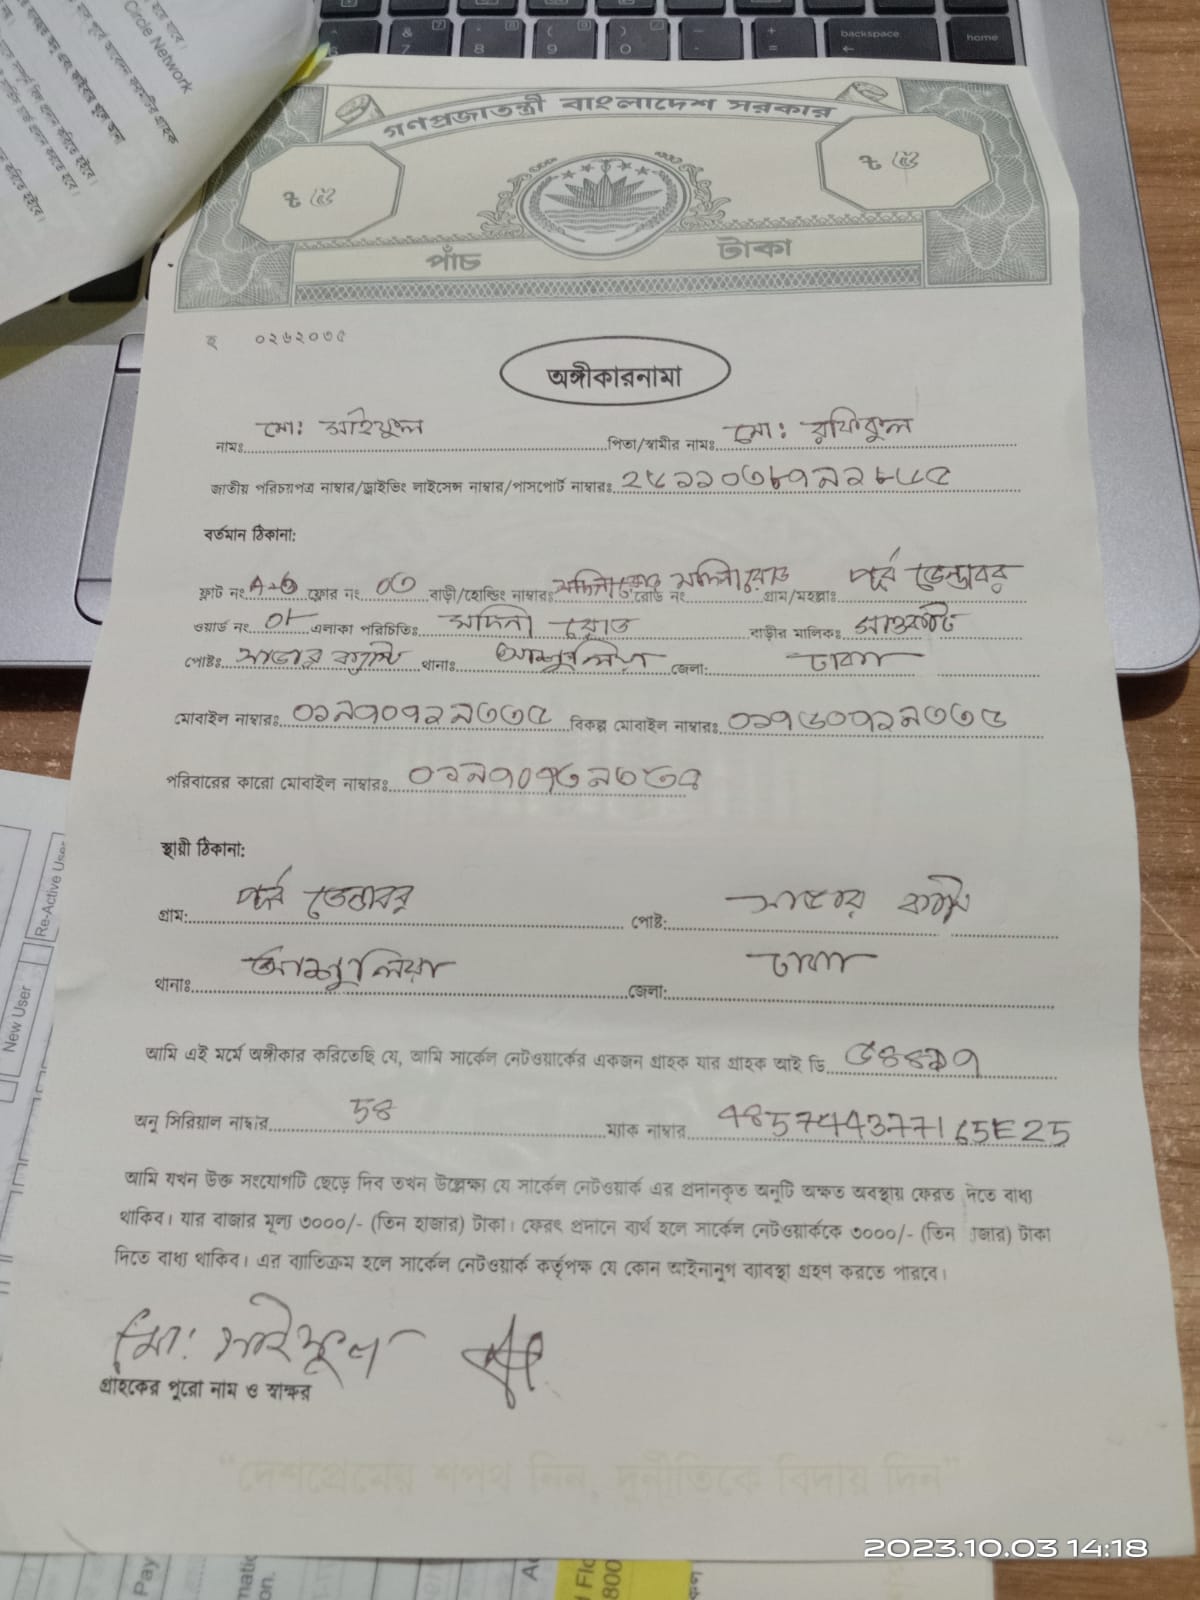 Circle Network
& 7
8
( 9
) 0
backspace
home
গণপ্রজাতন্ত্রী বাংলাদেশ সরকার
৳ ৫
৳ ৫
পাঁচ টাকা
হ ০২৬২০৩৫
অঙ্গীকারনামা
নামঃ মো: সাইফুল পিতা/স্বামীর নামঃ মো: রফিকুল
জাতীয় পরিচয়পত্র নাম্বার/ড্রাইভিং লাইসেন্স নাম্বার/পাসপোর্ট নাম্বারঃ
বর্তমান ঠিকানা:
ফ্লাট নং ফ্লোর নং ০৩ বাড়ী/হোল্ডিং নাম্বারঃ রোড নং গ্রাম/মহল্লাঃ পূর্ব ডেন্ডাবর
ওয়ার্ড নং ০৮ এলাকা পরিচিতিঃ মদিনা রোড বাড়ীর মালিকঃ
পোষ্টঃ থানাঃ আশুলিয়া জেলা: ঢাকা
মোবাইল নাম্বারঃ ০১৯৭০৭১৯৩৩৫ বিকল্প মোবাইল নাম্বারঃ
পরিবারের কারো মোবাইল নাম্বারঃ
স্থায়ী ঠিকানা:
গ্রাম: পূর্ব ডেন্ডাবর পোষ্ট:
থানাঃ আশুলিয়া জেলা: ঢাকা
আমি এই মর্মে অঙ্গীকার করিতেছি যে, আমি সার্কেল নেটওয়ার্কের একজন গ্রাহক যার গ্রাহক আই ডি
অনু সিরিয়াল নাম্বার 58 ম্যাক নাম্বার 485744377165E25
আমি যখন উক্ত সংযোগটি ছেড়ে দিব তখন উল্লেক্ষা যে সার্কেল নেটওয়ার্ক এর প্রদানকৃত অনুটি অক্ষত অবস্থায় ফেরত দিতে বাধ্য
থাকিব। যার বাজার মূল্য ৩০০০/- (তিন হাজার) টাকা। ফেরৎ প্রদানে ব্যর্থ হলে সার্কেল নেটওয়ার্ককে ৩০০০/- (তিন হাজার) টাকা
দিতে বাধ্য থাকিব। এর ব্যাতিক্রম হলে সার্কেল নেটওয়ার্ক কর্তৃপক্ষ যে কোন আইনানুগ ব্যাবস্থা গ্রহণ করতে পারবে।
মো: সাইফুল
গ্রাহকের পুরো নাম ও স্বাক্ষর
"দেশপ্রেমের শপথ নিন, দুর্নীতিকে বিদায় দিন"
New User
Re-Active User
Pay
800
2023.10.03 14:18